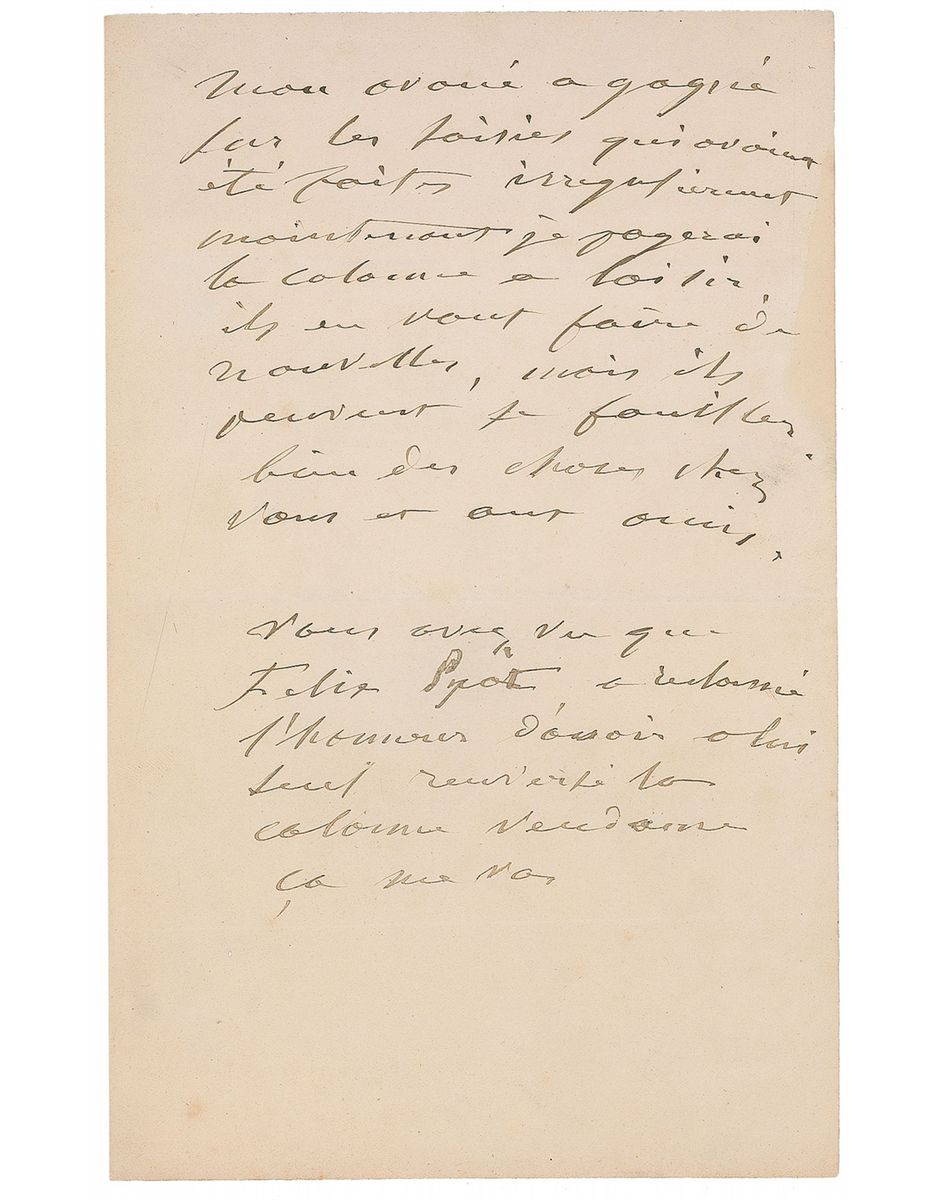 mon avoué a gagné
sur les saisies qui avaient
été faites irregulierement
maintenant je payerai
la colonne a loisir
ils en vont faire de
nouvelles, mais ils
peuvent se fouiller.
bien des choses chez
vous et aux amis.
vous avez vu que
Felix Pyat a reclamé
l'honneur d'avoir a lui
seul renversé la
colonne Vendome
ça me va